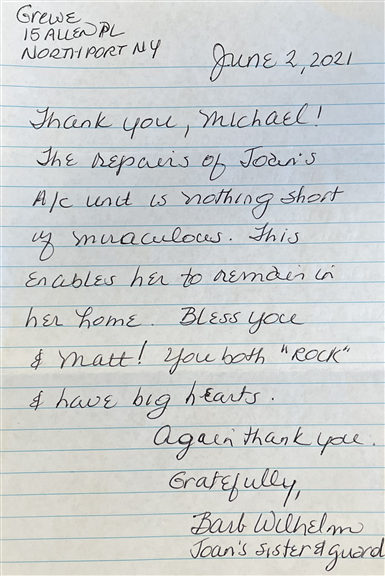 Grewe
15 ALLEN PL
NORTHPORT NY
June 2, 2021
Thank you, Michael!
The repairs of Joan's
A/c unit is nothing short
of miraculous. This
enables her to remain in
her home. Bless you
& Matt! You both "ROCK"
& have big hearts.
Again thank you.
Gratefully,
Barb Wilhelm
Joan's sister & guard